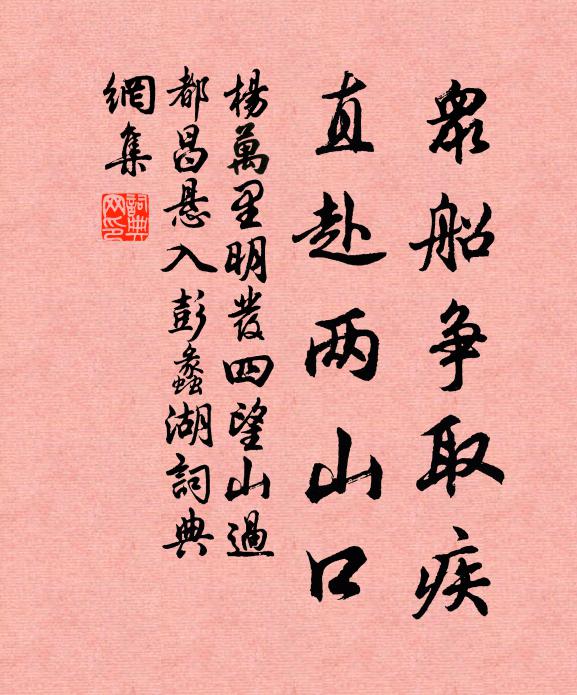 眾船争取疾
直赴两山口
楊萬里明發四望山過
都昌悬入彭蠡湖詞典
網集
詞典网印